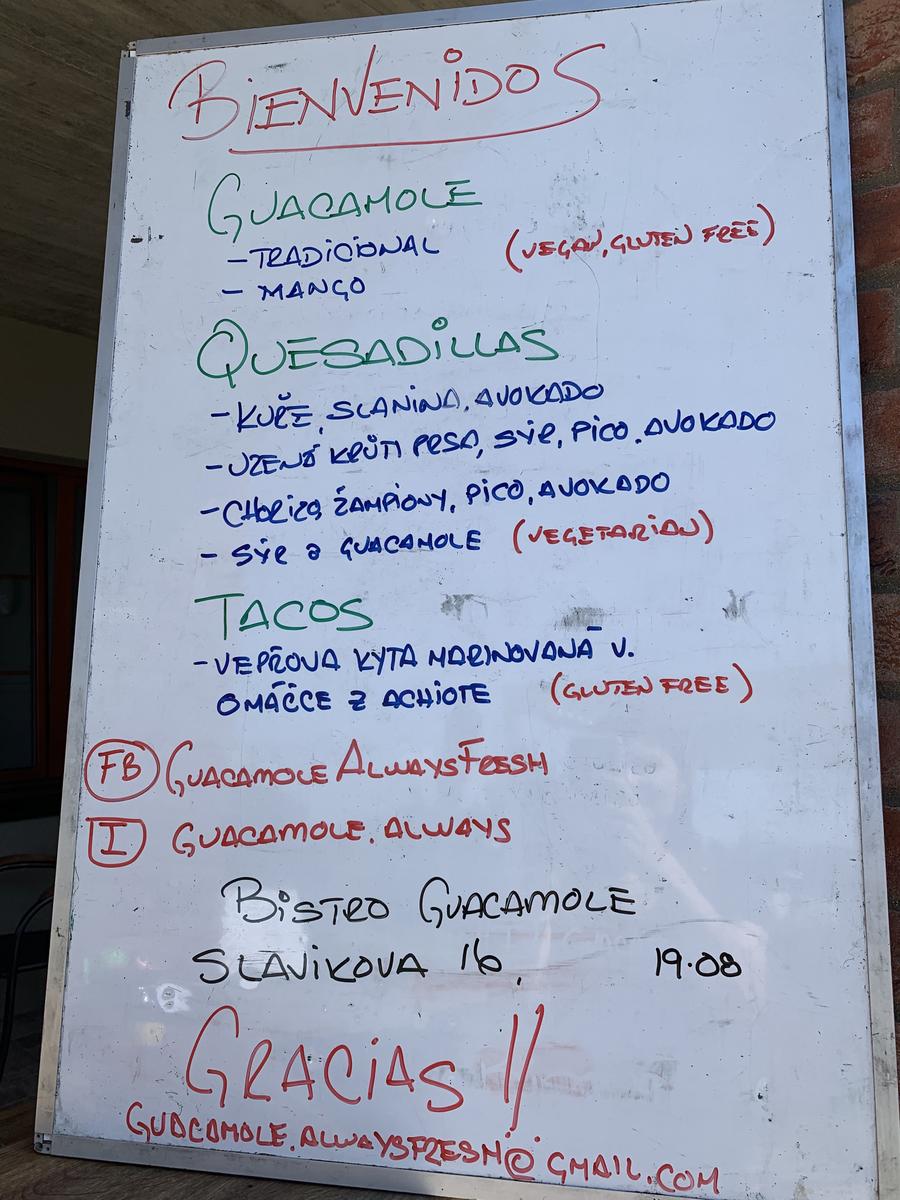 BIENVENIDOS
GUACAMOLE
- TRADICIONAL (VEGAN, GLUTEN FREE)
- MANGO
QUESADILLAS
- KUŘE, SLANINA, AVOKADO
- UZENÁ KRŮTI PRSA, SÝR, PICO, AVOKADO
- CHORIZO, ŽAMPIONY, PICO, AVOKADO
- SÝR a GUACAMOLE (VEGETARIAN)
TACOS
- VEPŘOVA KYTA MARINOVANÁ V.
OMÁČCE Z ACHIOTE (GLUTEN FREE)
FB GUACAMOLE ALWAYSFRESH
I GUACAMOLE.ALWAYS
BISTRO GUACAMOLE
SLAVIKOVA 16, 19.08
GRACIAS !!
GUACAMOLE.ALWAYSFRESH@GMAIL.COM